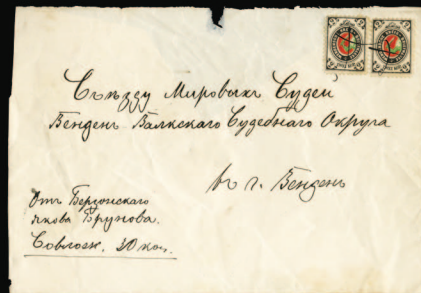 Съѣзду Мировыхъ Судей
Венденъ Валкскаго Судебнаго Округа
въ г. Венденъ
Отъ Берзонскаго
Якова Брунова.
30 коп.